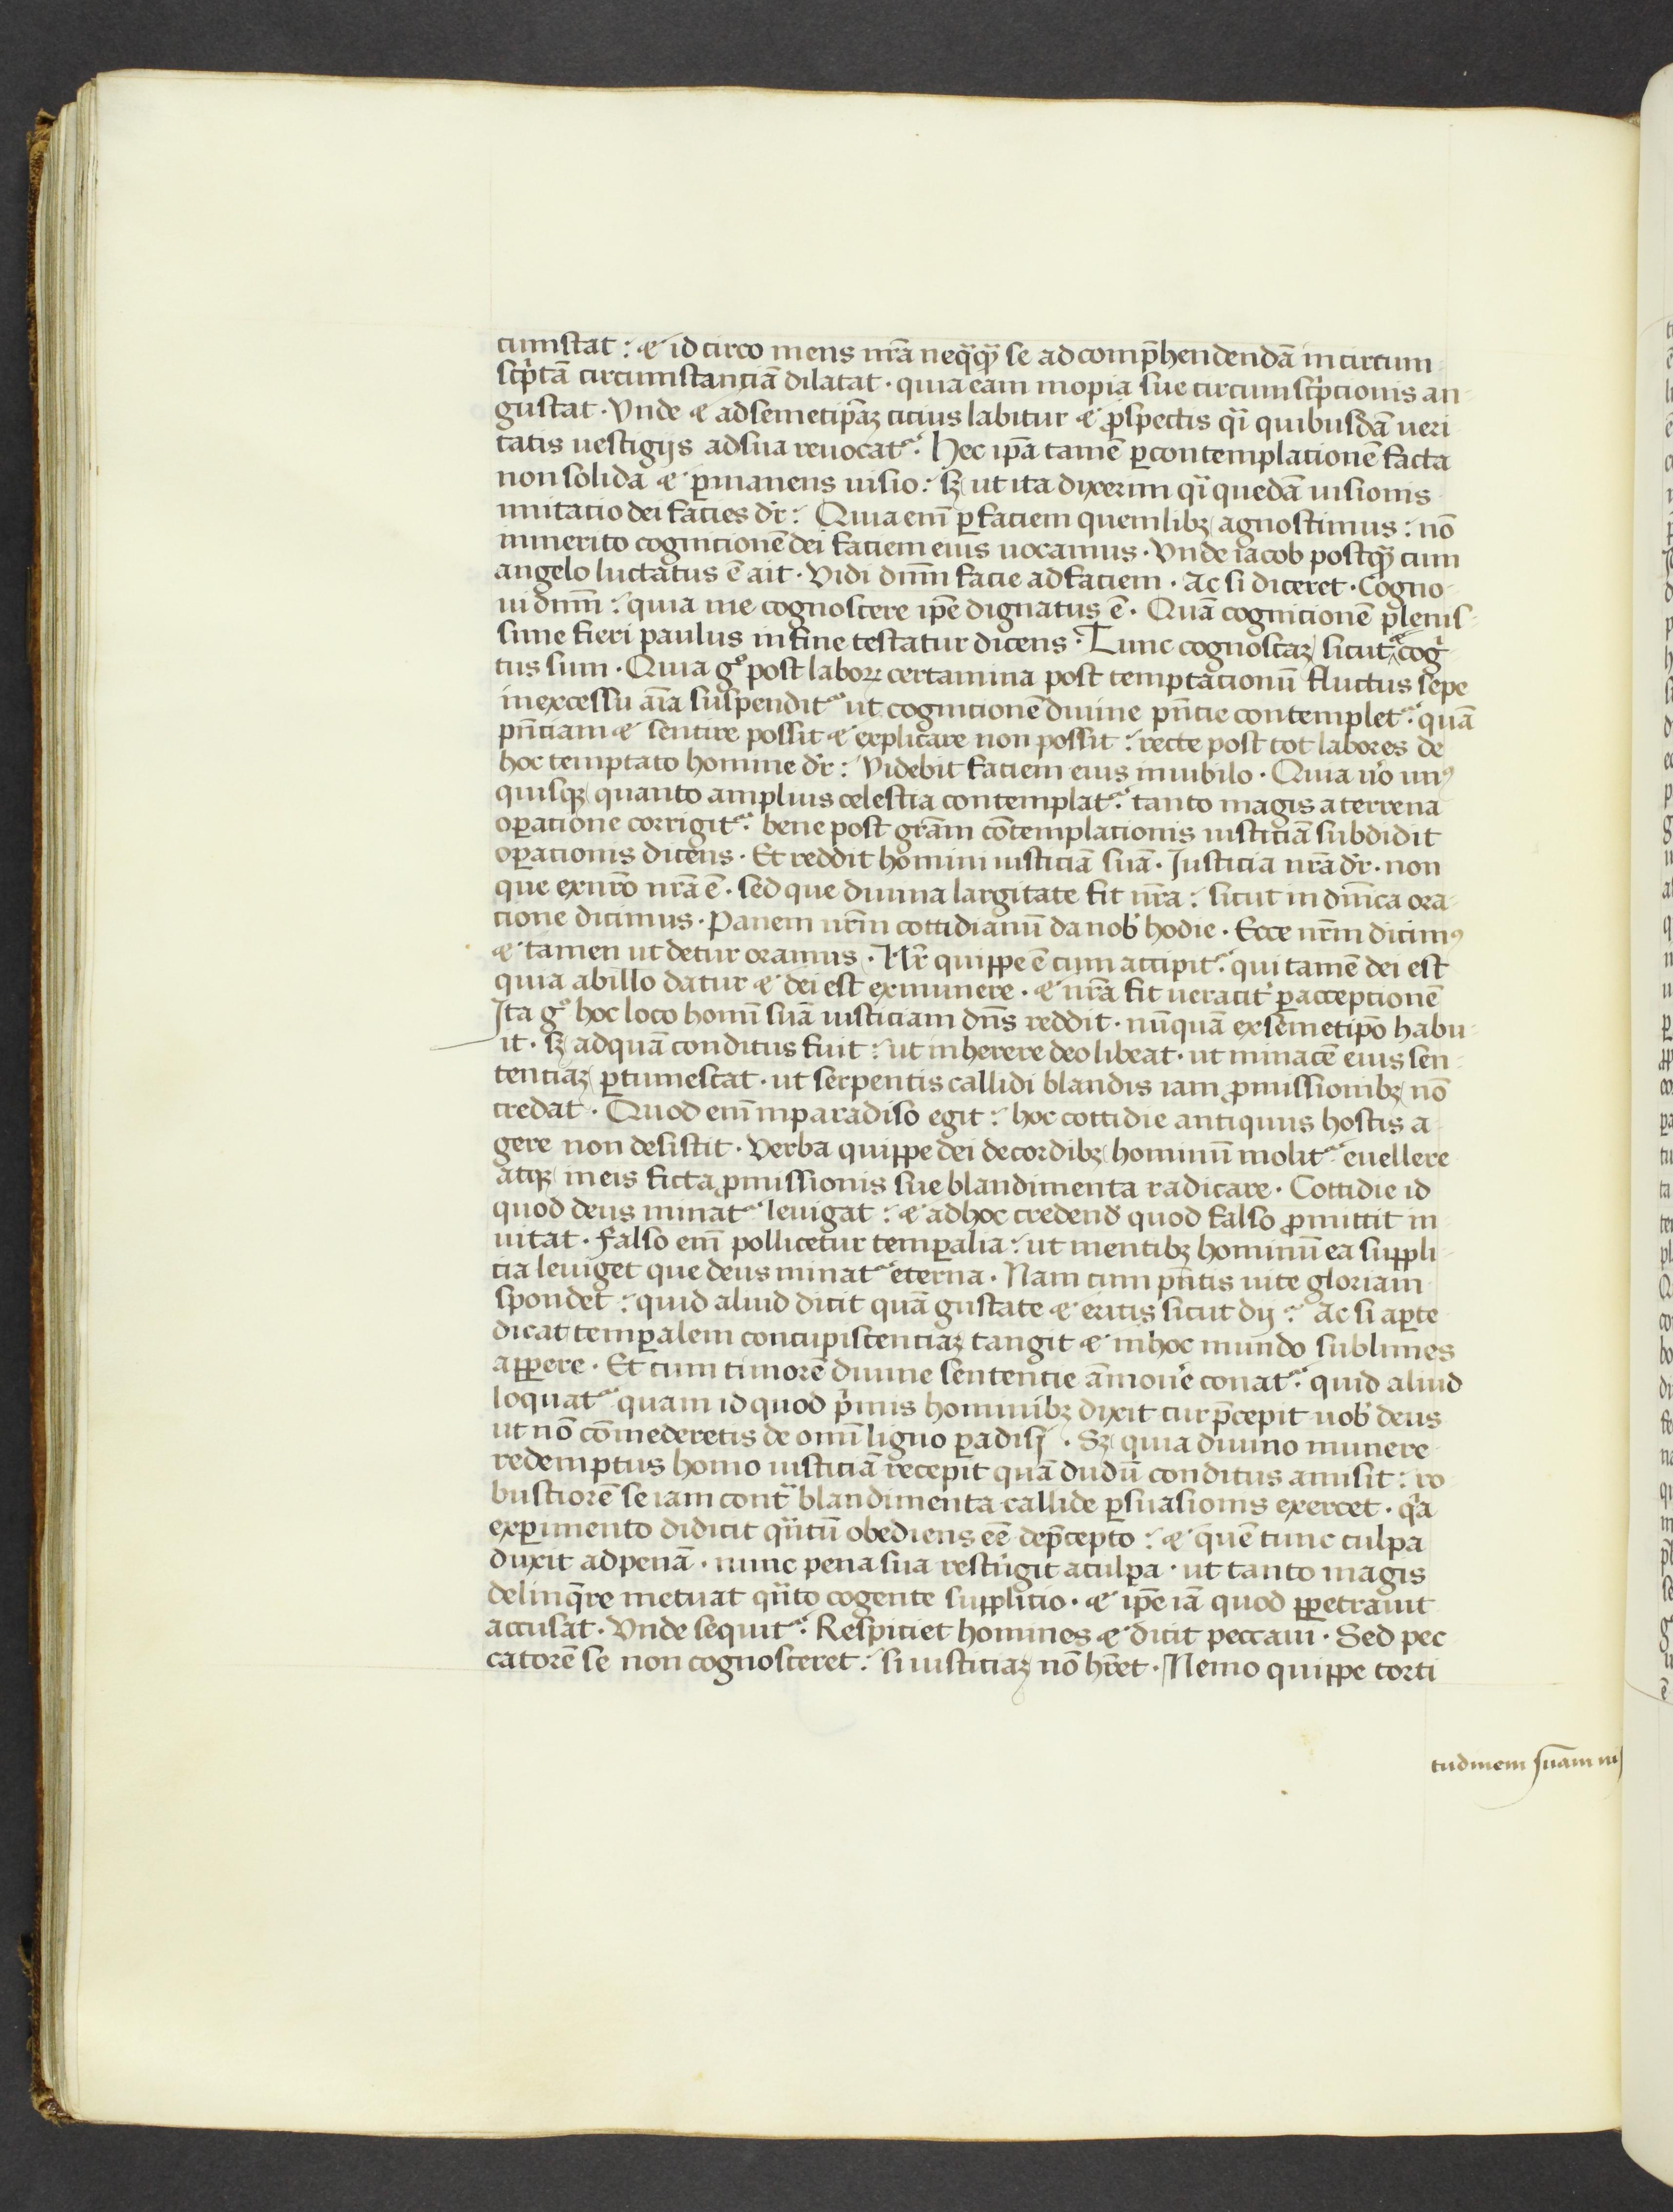 cumstat : & id circo mens nr̄a neq̄q̄ꝫ se ad comp̄hendendā incircum
sc̄ptā circumstanciā dilatat · quia eam inopia sue circumsc̄pcionis an
gustat · Vnde & ad semetip̄aꝫ cicius labitur & ꝓspectis q̄i quibusdā ueri
tatis uestigijs ad sua reuocat᷑ : Hec ip̄a tamē ꝑ contemplacionē facta
non solida & ꝑmanens uisio : sꝫ ut ita dixerim q̄i quedā uisionis
imitacio dei facies dr̄ : Quia em̄ ꝑ faciem quemlibꝫ agnoscimus : nō
immerito cognicionē dei faciem eius uocamus · Vnde iacob postq̄ꝫ cum
angelo luctatus ē ait · Vidi dn̄m facie ad faciem · Ac si diceret · Cogno
ui dn̄m : quia me cognoscere ip̄e dignatus ē · Quā cognicionē plenis
sime fieri paulus in fine testatur dicens · Tunc cognoscaꝫ sicut & cogͥ
tus sum · Quia gͦ post laboꝝ certamina post temptacionū fluctus sepe
in excessu aīa suspendit᷑ ut cognicionē diuine pn̄cie contemplet᷑ : quā
pn̄ciam & sentire possit & explicare non possit : recte post tot labores de
hoc temptato homine dr̄ : Videbit faciem eius in iubilo · Quia uͦo unꝰ
quisqꝫ quanto amplius celestia contemplat᷑ : tanto magis a terrena
oꝑacione corrigit᷑ : bene post grām cōtemplacionis iusticiā subdidit
oꝑacionis dicens · Et reddit homini iusticiā suā · Justicia nr̄a dr̄ · non
que ex nr̄o nr̄a ē · sed que diuina largitate fit nr̄a : sicut in dn̄ica ora
cione dicimus · Panem nr̄m cottidianū da nob̄ hodie · Ecce nr̄m dicimꝰ
& tamen ut detur oramus · Nr̄ quippe ē cum accipit᷑ : qui tamē dei est
quia ab illo datur & dei est ex munere · & nr̄a fit ueracit̄ ꝑ accepcionē
Ita gͦ hoc loco homī suā iusticiam dn̄s reddit · nūquā ex semetip̄o habu
it · sꝫ ad quā conditus fuit : ut inherere deo libeat · ut minacē eius sen
tenciaꝫ ꝑtumescat · ut serpentis callidi blandis iam ꝓmissionibꝫ nō
credat · Quod em̄ in paradiso egit : hoc cottidie antiquus hostis a
gere non desistit · Verba quippe dei de cordibꝫ hominū molit᷑ euellere
atqꝫ in eis ficta ꝓmissionis sue blandimenta radicare · Cottidie id
quod deus minat᷑ leuigat : & ad hoc credend̄ quod falso ꝓmittit in
uitat · Falso em̄ pollicetur temꝑalia : ut mentibꝫ hominū ea suppli
cia leuiget que deus minat᷑ eterna · Nam cum pn̄tis uite gloriam
spondet : quid aliud dicit quā gustate & eritis sicut dij : Ac si aꝑte
dicat temꝑalem concupiscenciaꝫ tangit & in hoc mundo sublimes
apꝑere · Et cum timorē diuine sentencie āmouē conat᷑ : quid aliud
loquat᷑ quam id quod pͥmis hominibꝫ dixit cur p̄cepit uob̄ deus
ut nō cōmederetis de omī ligno ꝑadisi · Sꝫ quia diuino munere
redemptus homo iusticiā recepit quā dudū conditus amisit : ro
bustiorē se iam contͣ blandimenta callide ꝑsuasionis exercet · qͥa
exꝑimento didicit qͣntū obediens eē dep̄cepto : & quē tunc culpa
duxit ad penā · nunc pena sua restrīgit a culpa · ut tanto magis
delinq̄re metuat qͣnto cogente supplicio · & ip̄e iā quod ꝑpetrauit
accusat · Vnde sequit᷑ : Respiciet homines & dicit peccaui · Sed pec
catorē se non cognosceret : si iusticiaꝫ nō hr̄et · Nemo quippe torti
tudinem suam